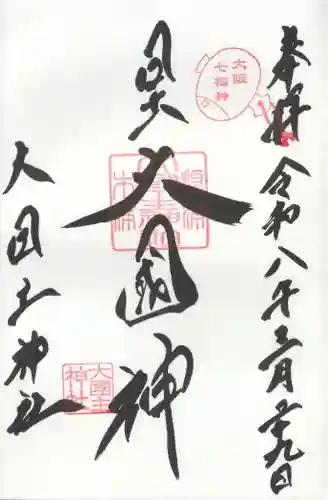 奉拝
令和八年三月二十九日
大阪
七福神
日出
大國神
大国主神社
大国主
神社